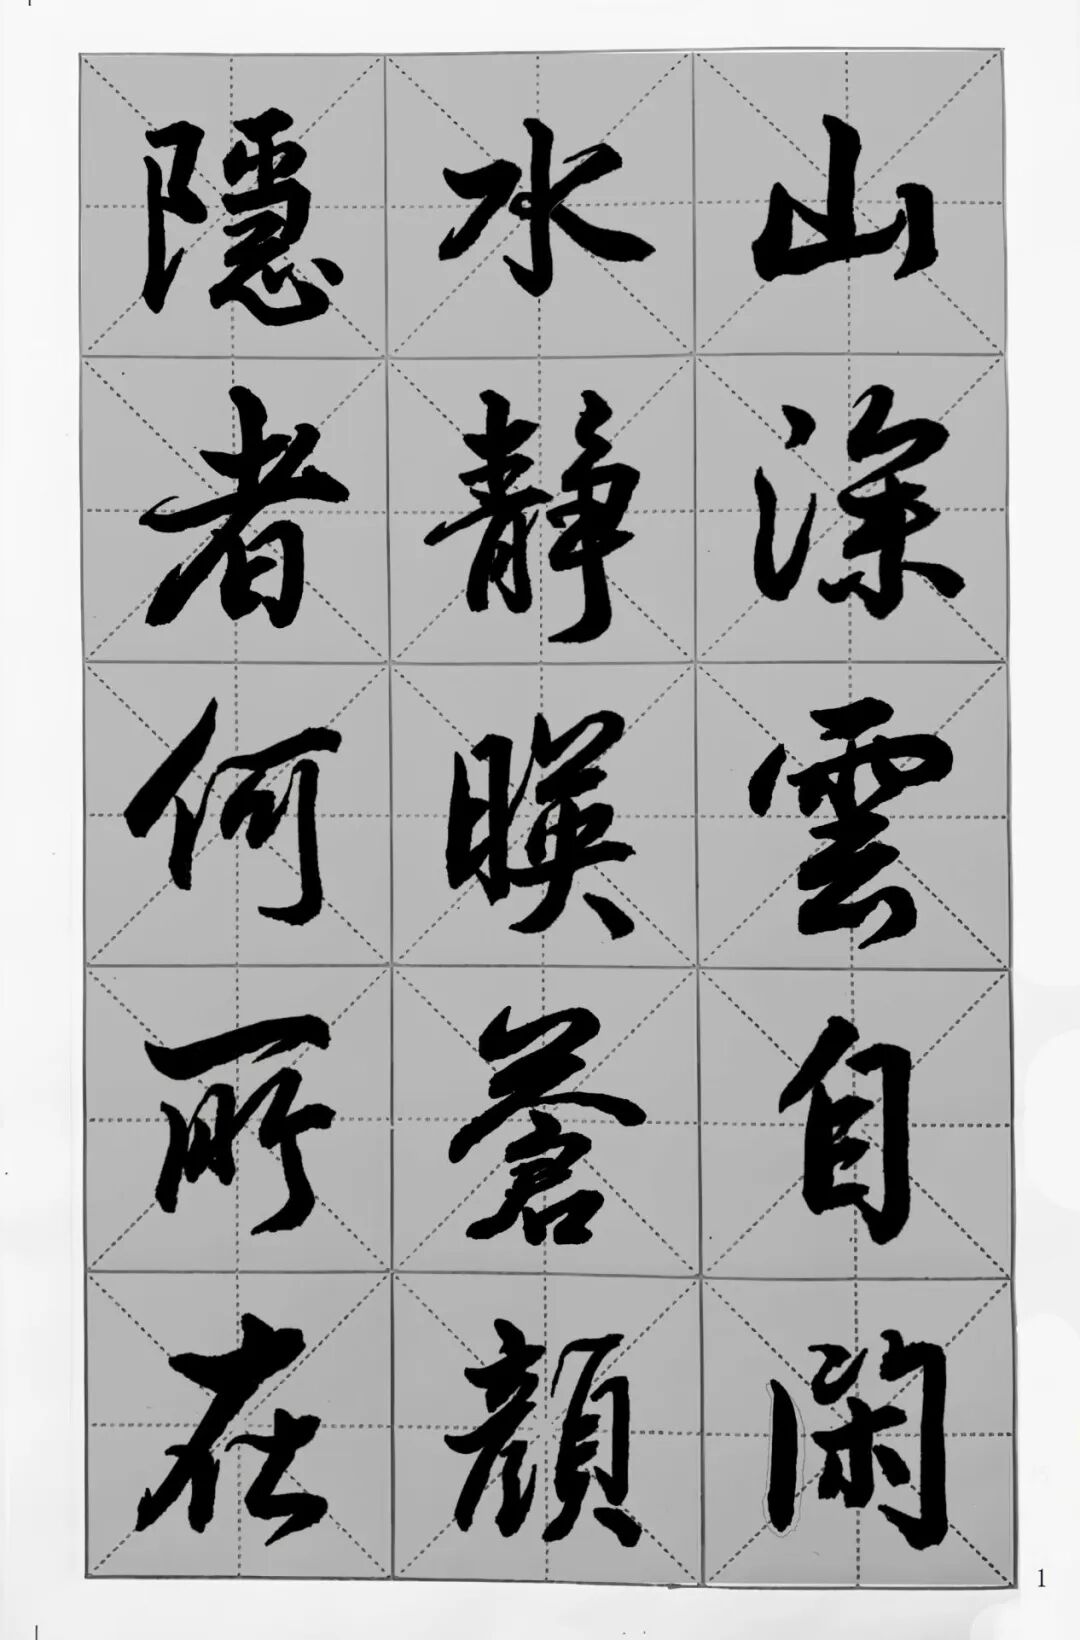 山深雲自閑
水靜暎蒼顔
隱者何所在
1